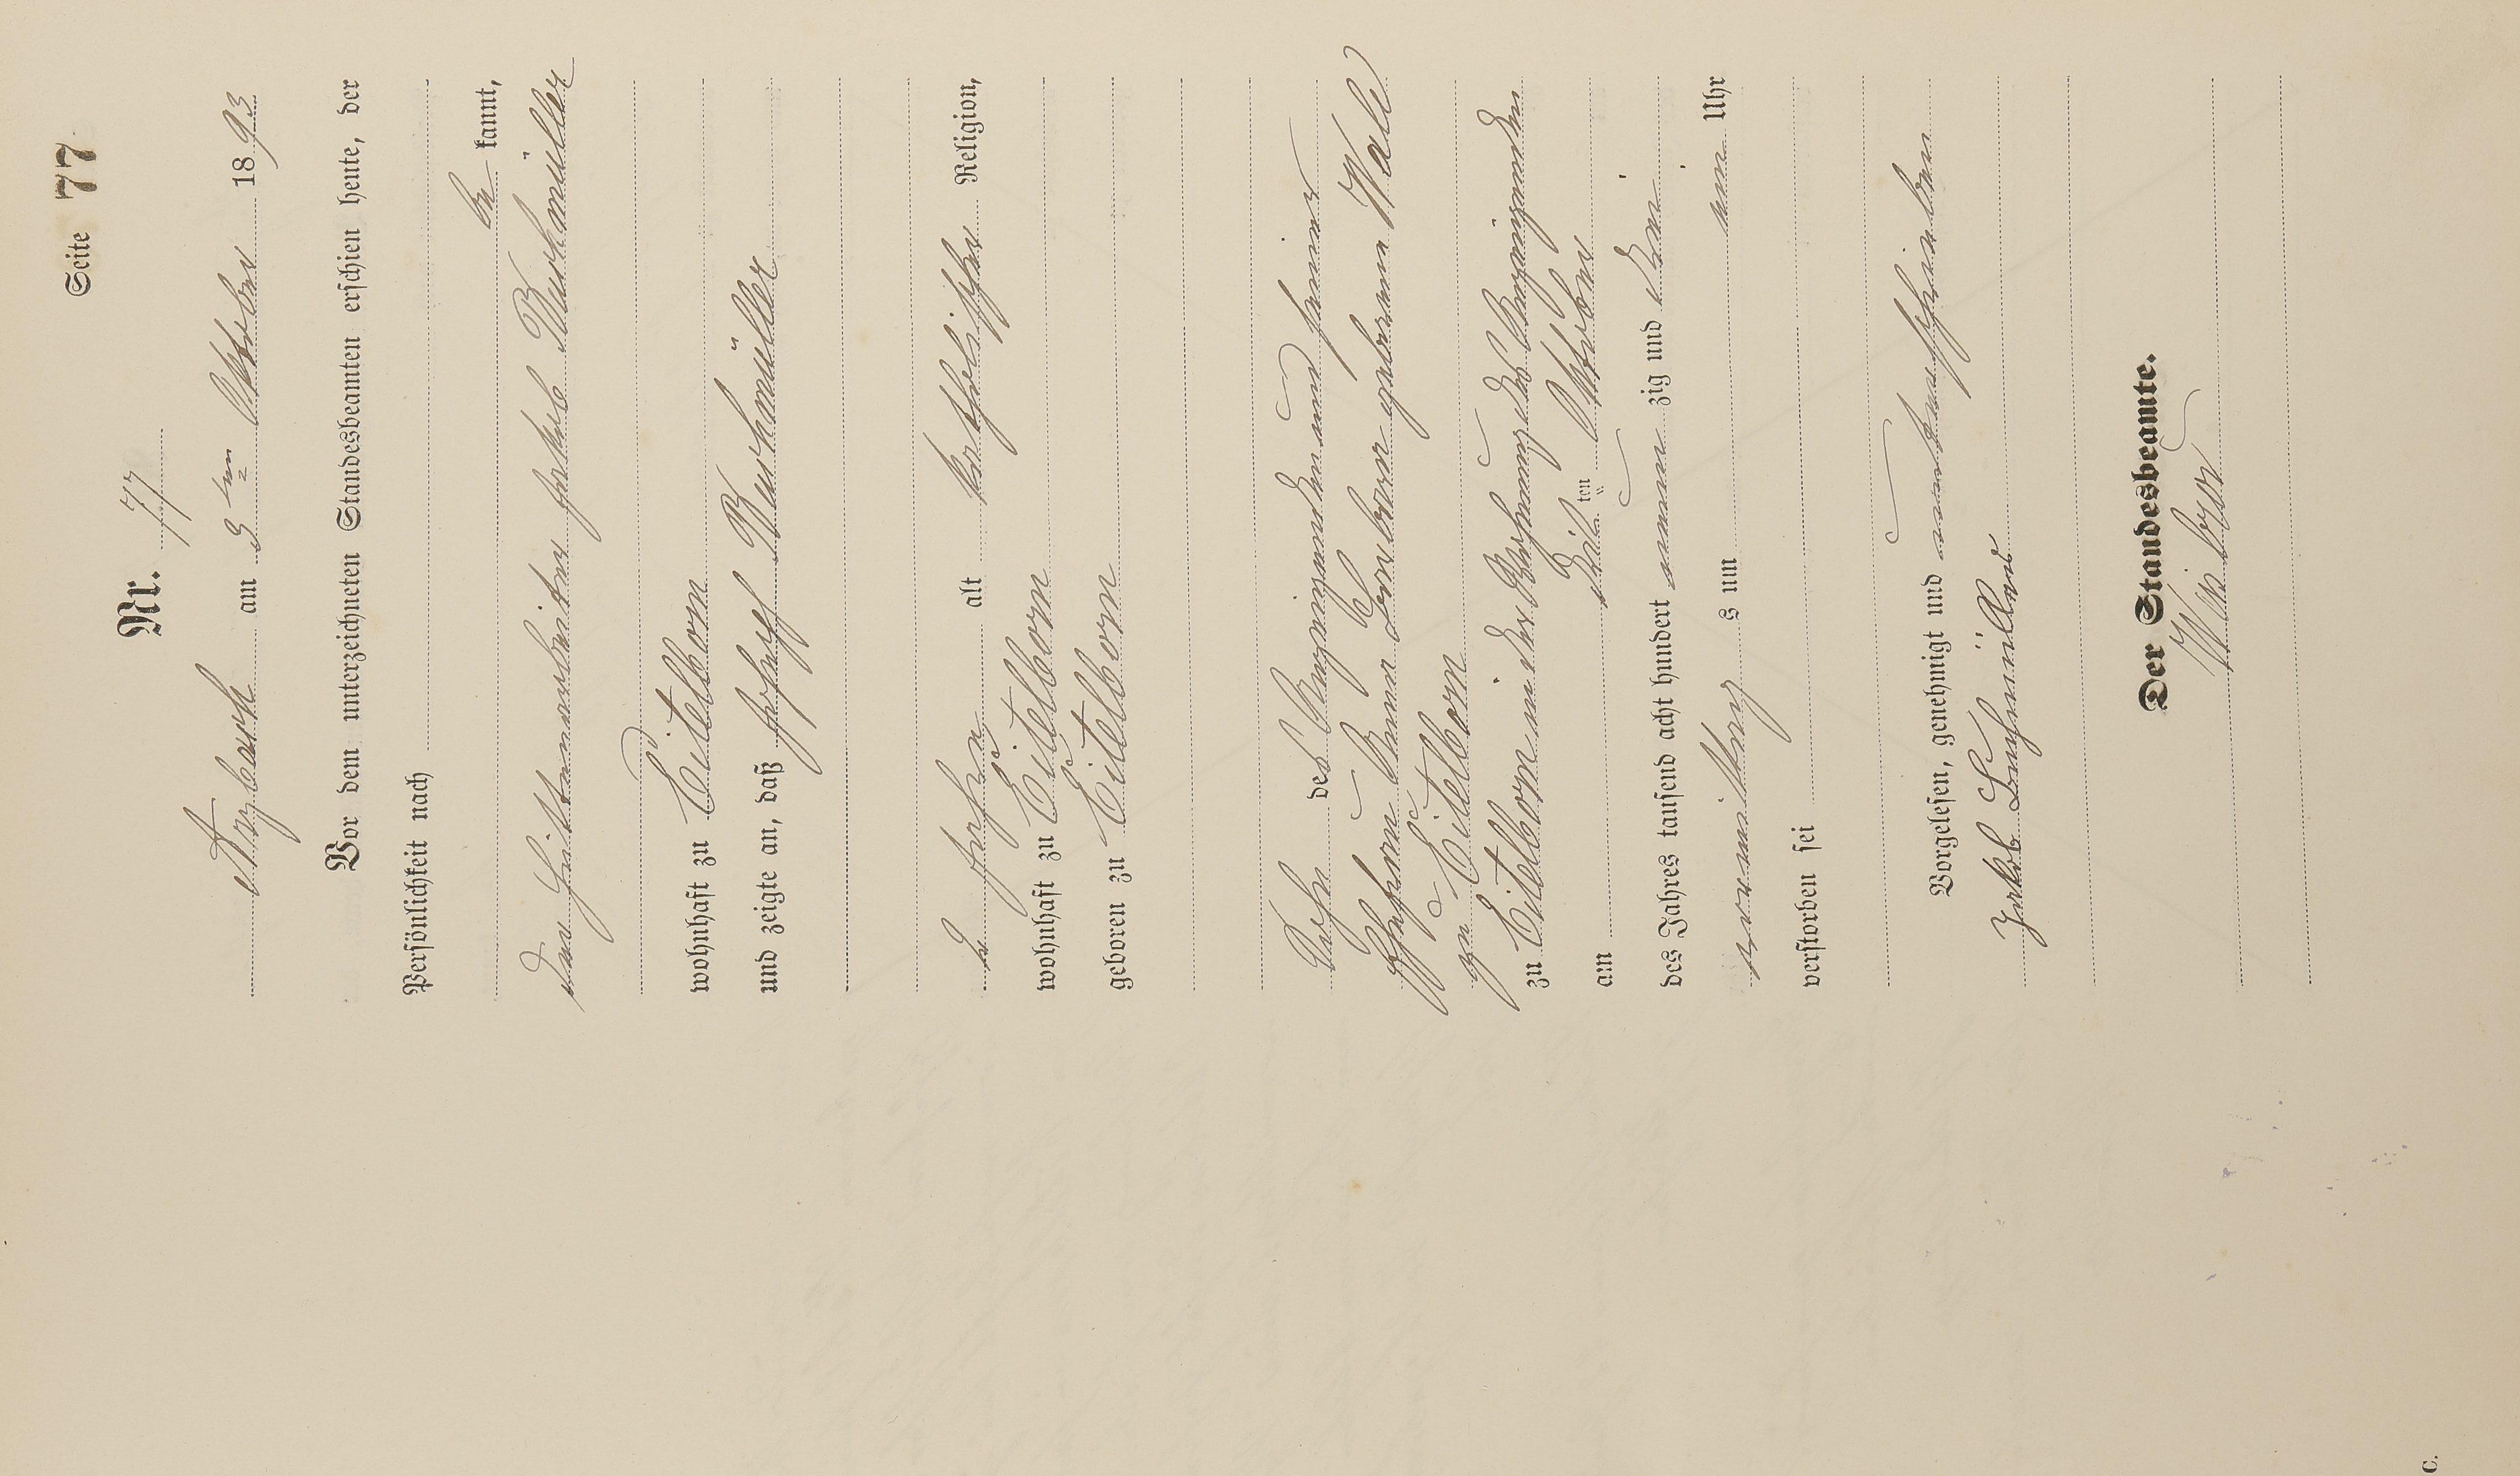 Seite 77
Nr. 77
Arzbach am 3ten Oktober 1893
Vor dem unterzeichneten Standesbeamten erschien heute, der
Persönlichkeit nach
be kannt,
der Hüttenarbeiter Jakob Buchmüller
wohnhaft zu Eitelborn
und zeigte an, daß Joseph Buchmüller
2 Jahre alt katholischer Religion,
wohnhaft zu Eitelborn
geboren zu Eitelborn
Sohn des Anzeigenden und seiner
Ehefrau Anna Barbara geborene Wall
zu Eitelborn
zu Eitelborn in der Wohnung des Anzeigenden
am dritten Oktober
des Jahres tausend acht hundert neun zig und drei
vormittag s um Uhr
verstorben sei
Vorgelesen, genehmigt und unterschrieben
Jakob Buchmüller
Der Standesbeamte.
C.